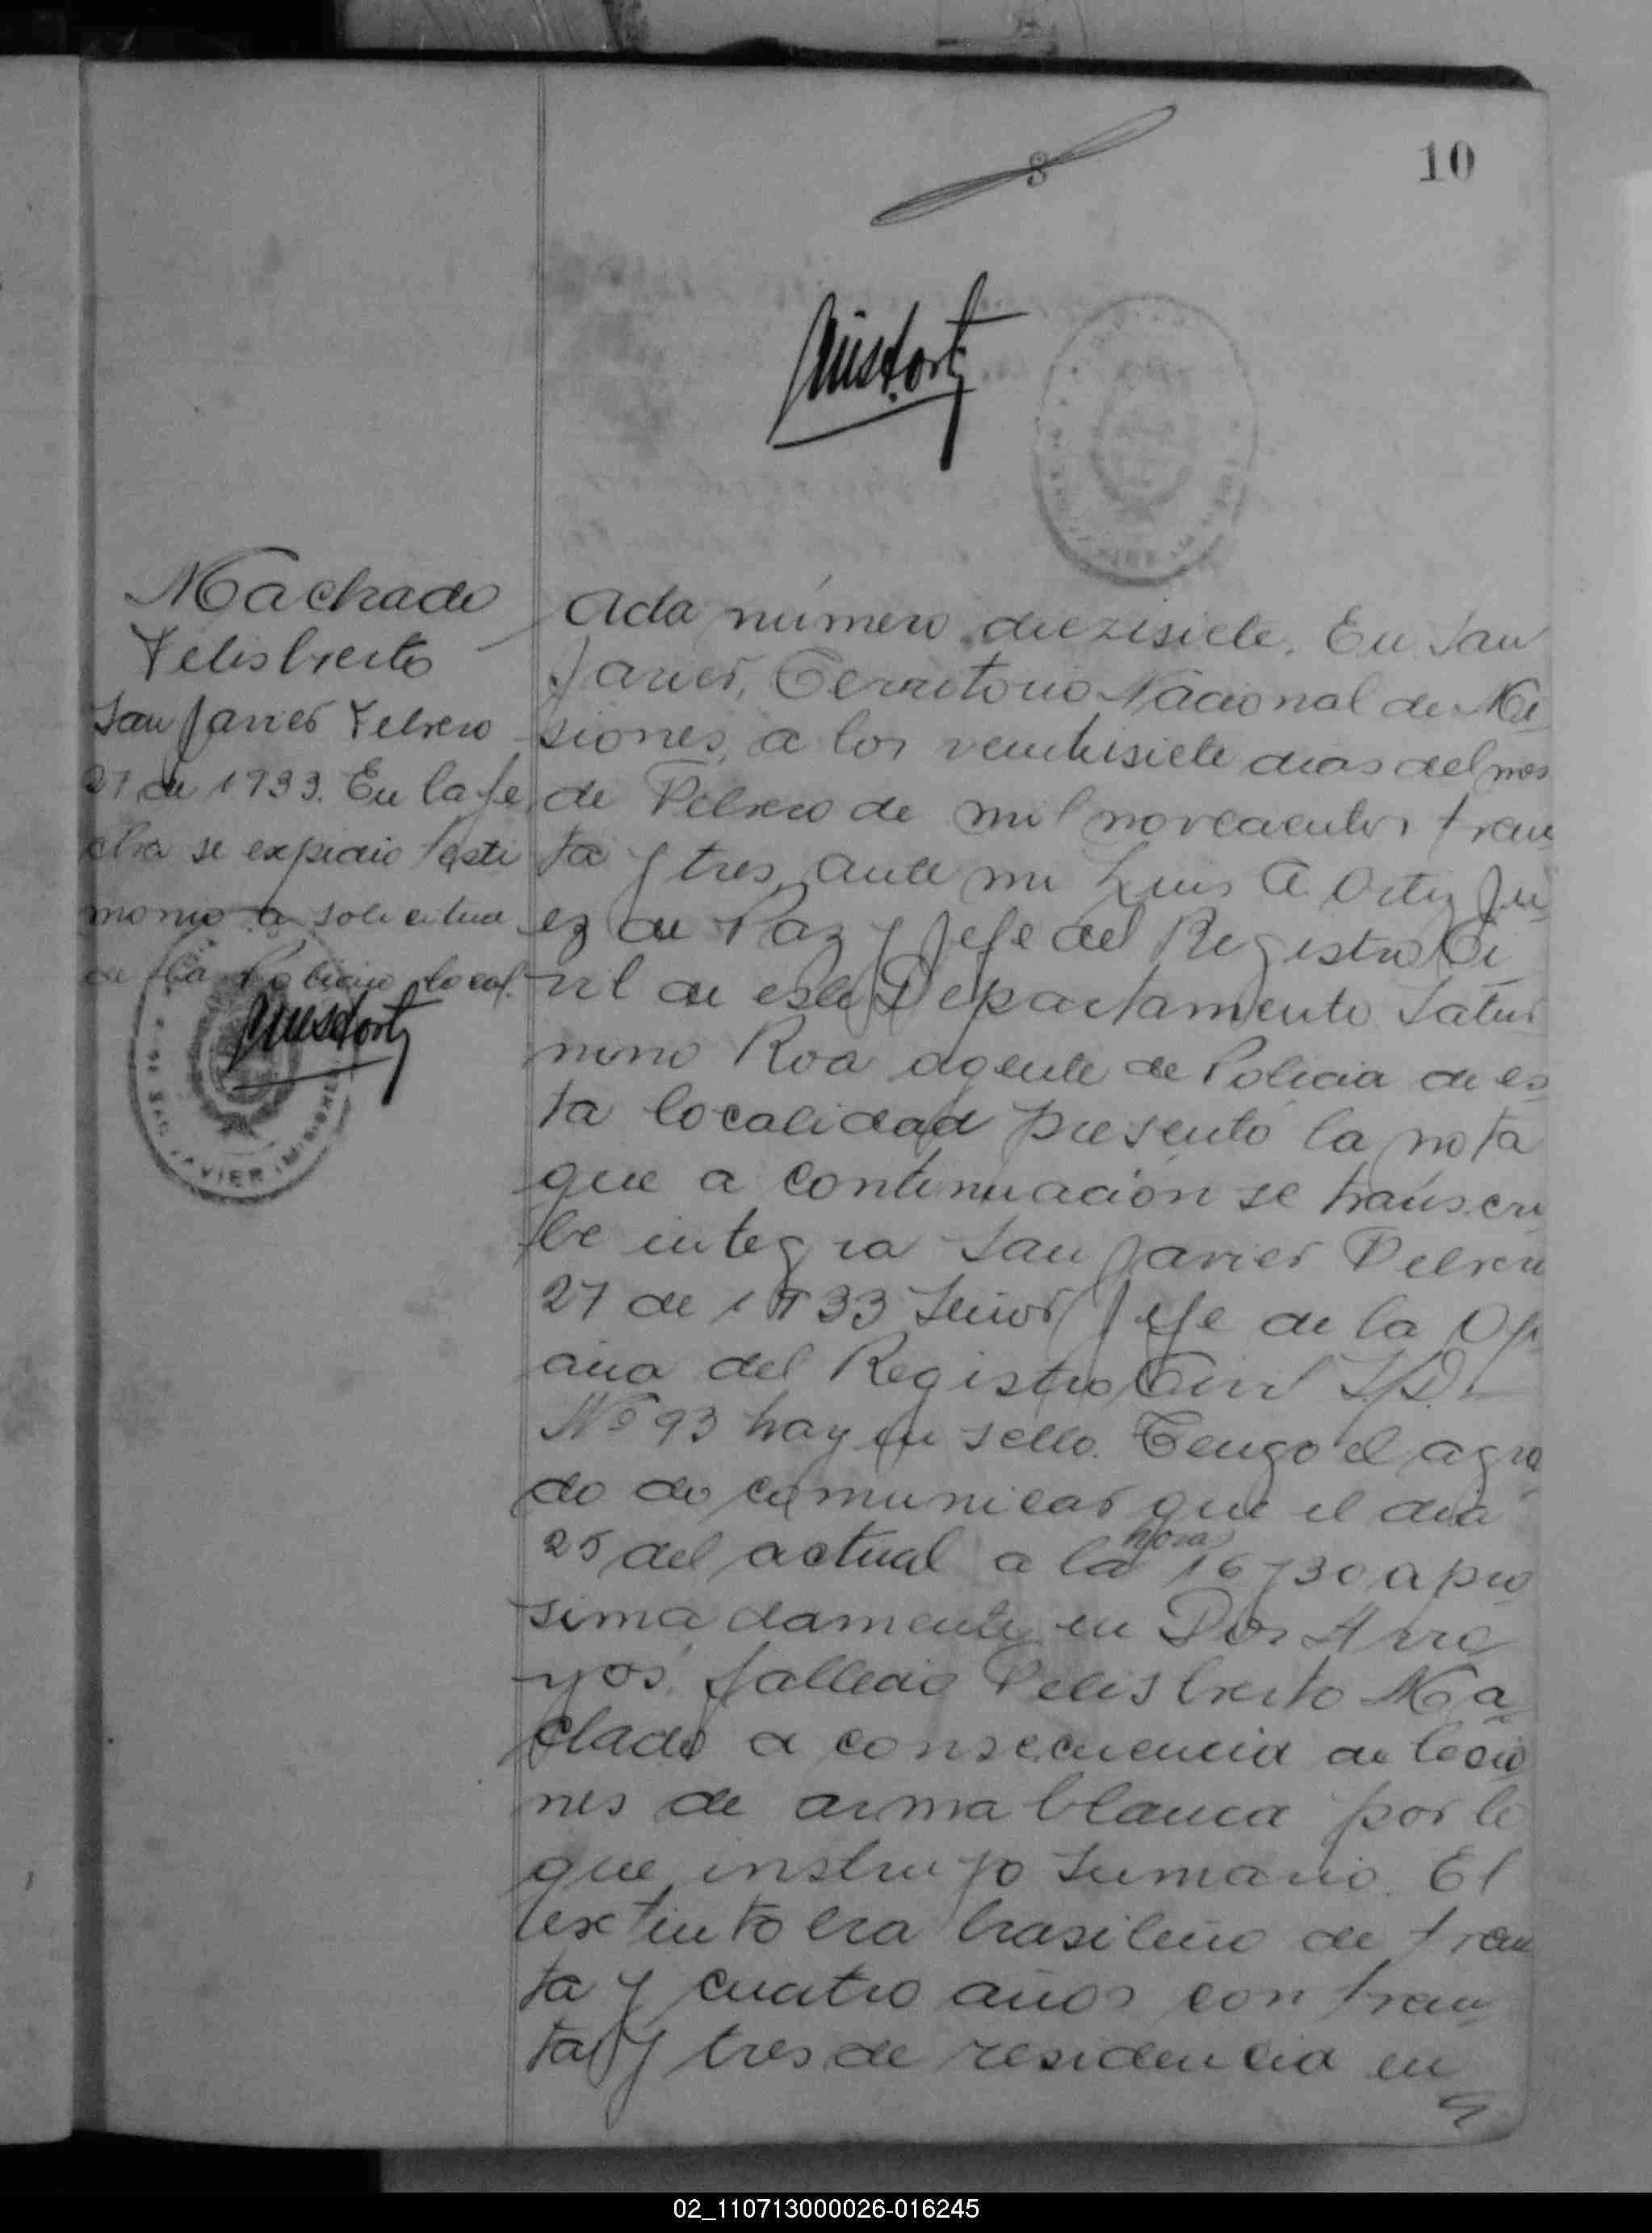 10
8
Machado
Felisberto
San Javier Febrero
27 de 1933. En la fe
cha se expidio testi
monio a solicitud
de la Policia local.
Acta número diezisiete. En San
Javier, Territorio Nacional de Mi
siones, a los veintisiete dias del mes
de Febrero de mil novecientos trein
ta y tres, ante mi Luis A Ortiz Ju
ez de Paz y Jefe del Registro Ci
vil de este Departamento Satur
nino Roa agente de Policia de es
ta localidad presentó la nota
que a continuación se transcri
be integra San Javier Febrero
27 de 1933 Señor Jefe de la Ofi
cina del Registro Civil S/D.
Nº 93 hay un sello. Tengo el agra
do de comunicar que el dia
25 del actual a la hora 16 y 30 apro
simadamente en Dos Arro
yos, fallecio Felisberto Ma
chado a consecuencia de lecio
nes de arma blanca por lo
que instruyo sumario. El
extinto era brasileño de trein
ta y cuatro años con trein
ta y tres de residencia en
VIER (MISIONES
02_110713000026-016245